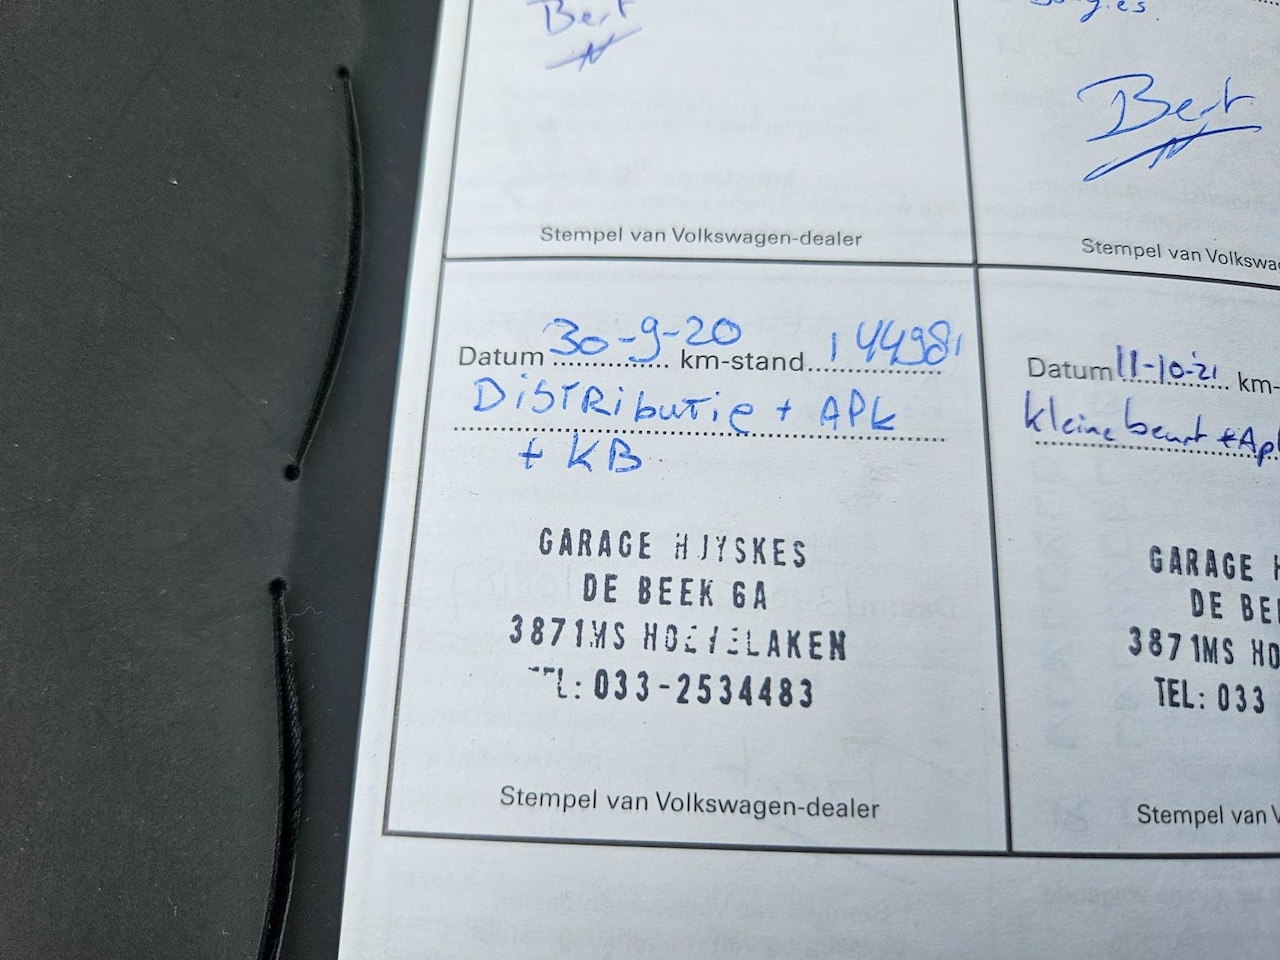 Bert
Bert
Stempel van Volkswagen-dealer
Stempel van Volkswa
Datum 30-9-20 km-stand 144981
DISTRibuTie + APK
+ KB
GARAGE HUYSKES
DE BEEK 6A
3871MS HOEVELAKEN
TEL: 033-2534483
Stempel van Volkswagen-dealer
Datum 11-10-'21 km-
kleine beurt + Apk
GARAGE H
DE BE
3871MS HO
TEL: 033
Stempel van V